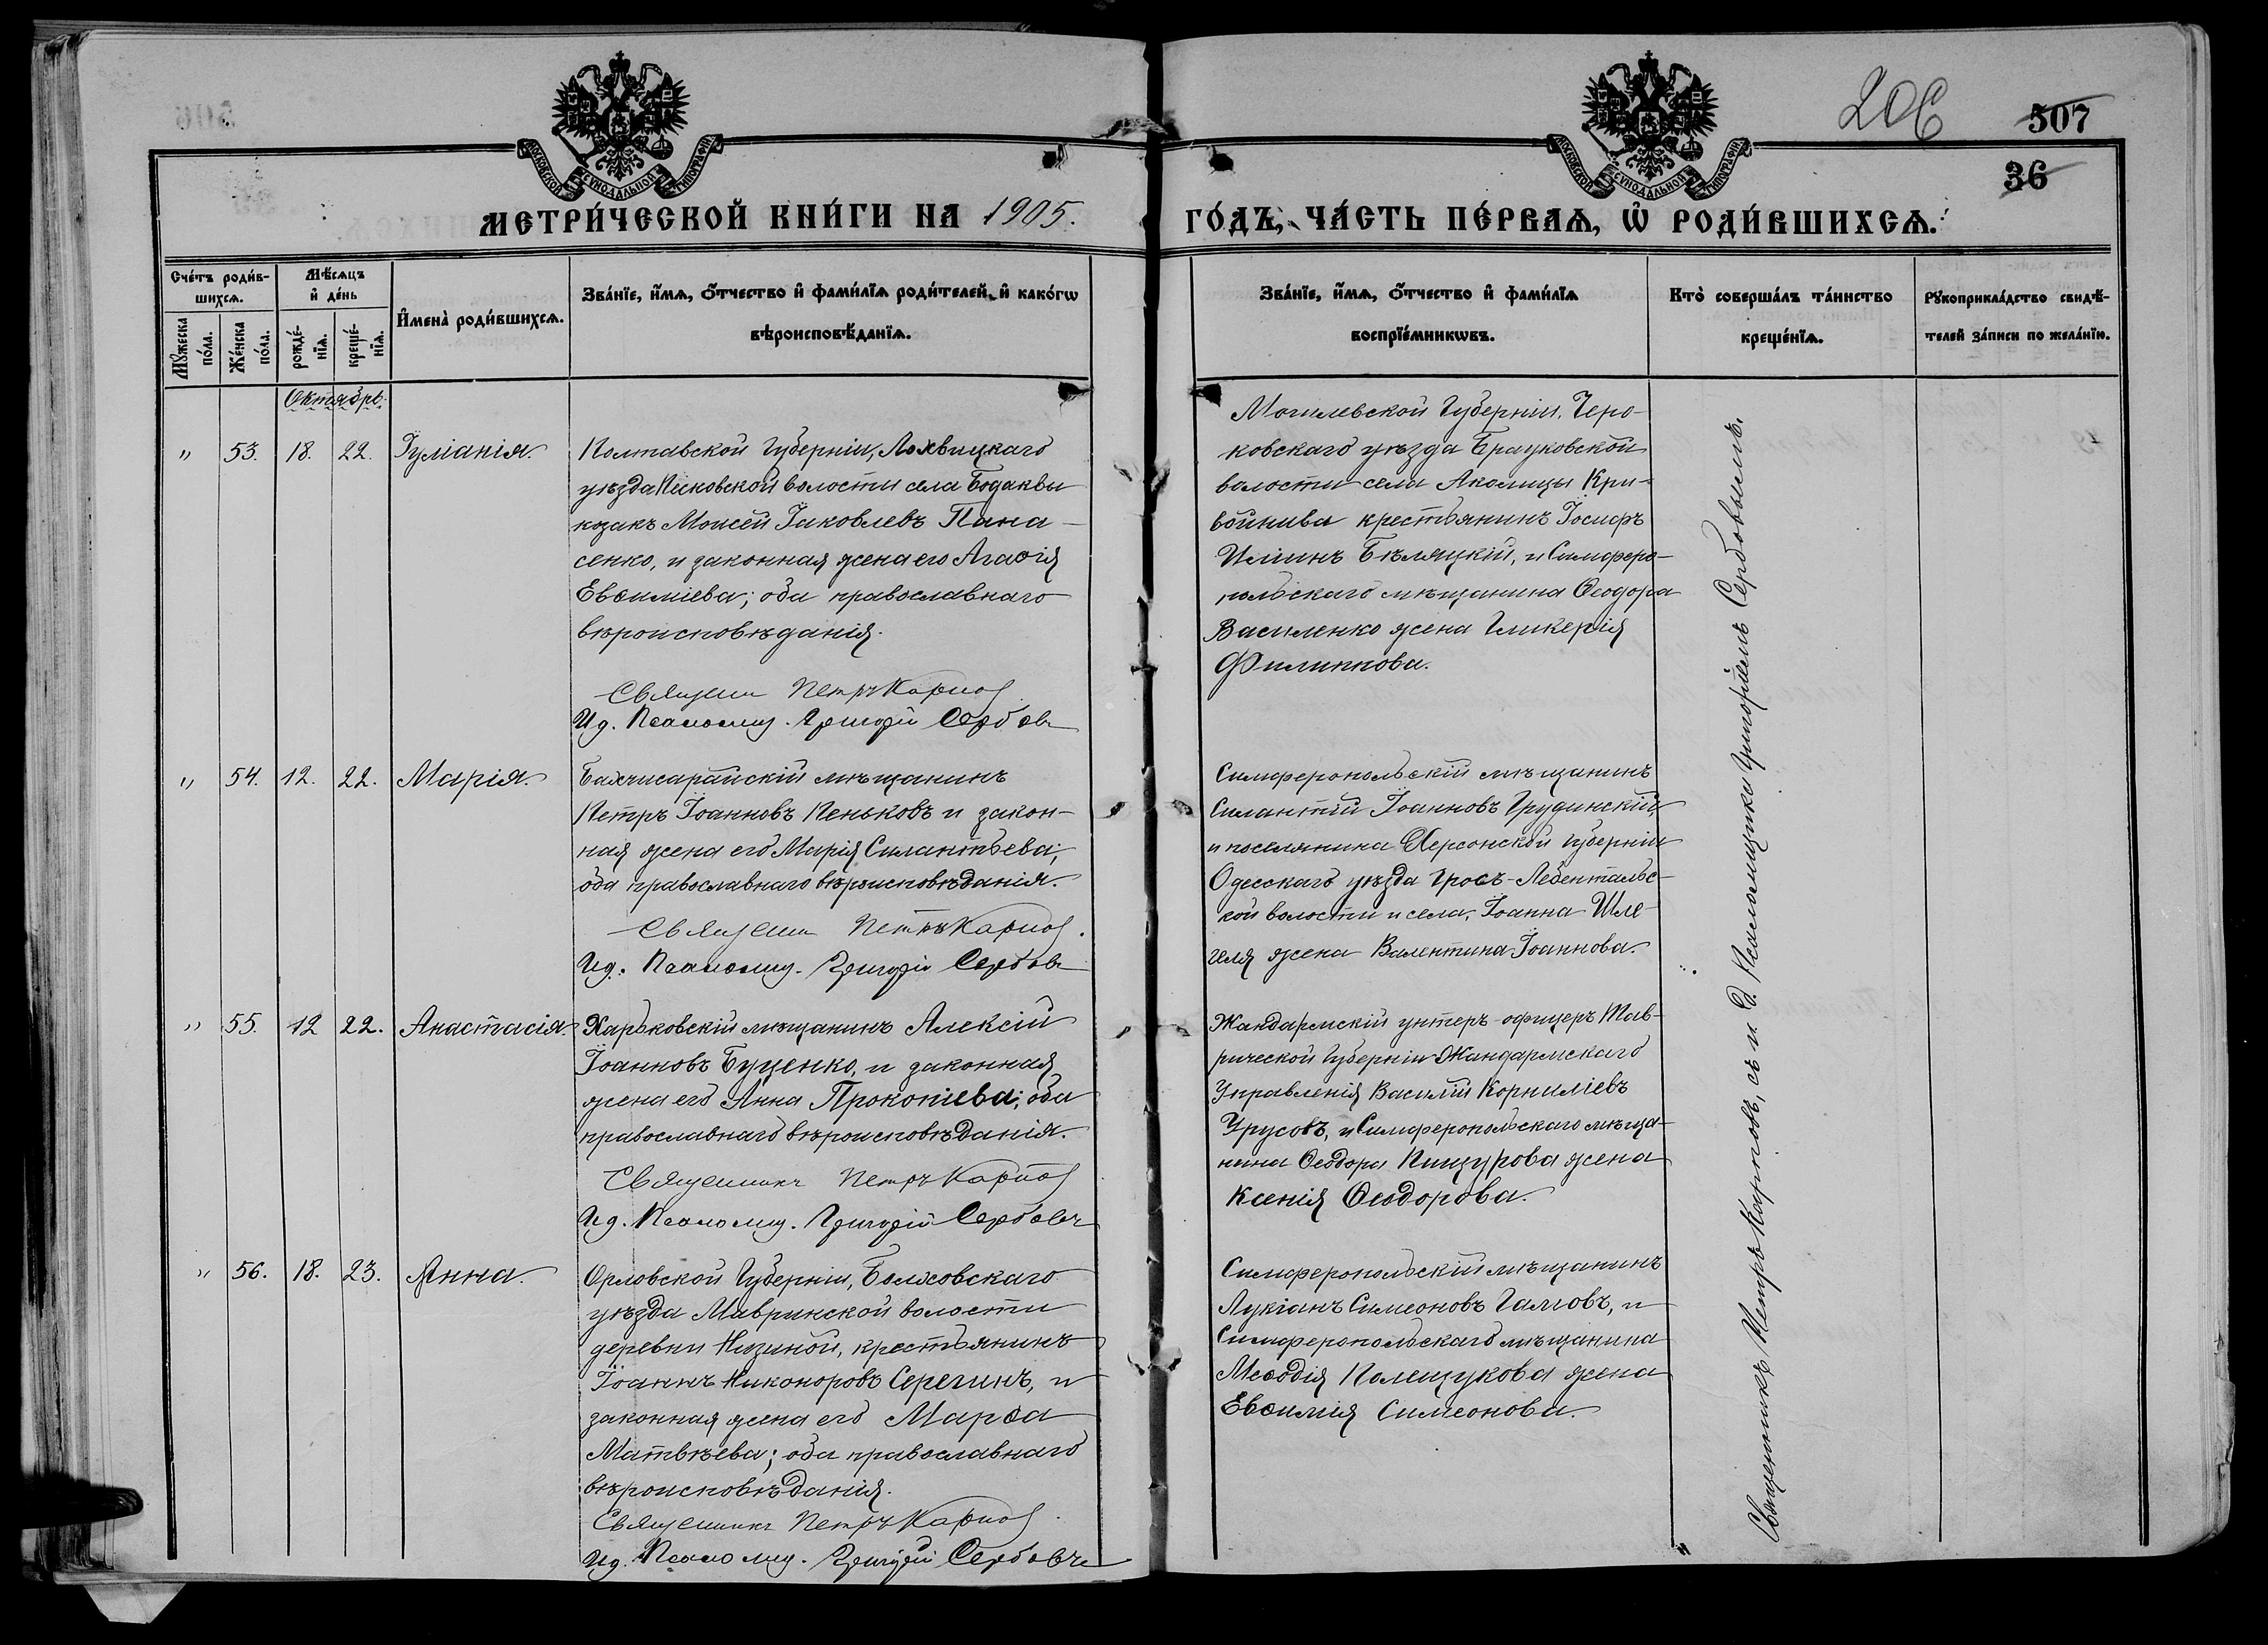 206
507
36
МОСКОВСКОЙ СѴНОДАЛЬНОЙ ТИПОГРАФІИ
МОСКОВСКОЙ СѴНОДАЛЬНОЙ ТИПОГРАФІИ
МЕТРИ́ЧЕСКОЙ КНИ́ГИ НА 1905.
ГО́ДЪ, ЧА́СТЬ ПЕ́РВАѦ, Ѡ҆ РОДИ́ВШИХСѦ.
Сче́тъ роди́в-
шихсѧ.
Мꙋ́жеска
по́ла.
Же́нска
по́ла.
Мѣ́сѧцъ
и҆ де́нь
рожде́-
нїѧ.
креще́-
нїѧ.
И҆мена̀ роди́вшихсѧ.
Зва́нїе, и҆́мѧ, ѻ҆́тчество и҆ фами́лїѧ роди́телей, и҆ како́гѡ
вѣроисповѣ́данїѧ.
Зва́нїе, и҆́мѧ, ѻ҆́тчество и҆ фами́лїѧ
воспрїе́мникѡвъ.
Кто̀ соверша́лъ та́инство
креще́нїѧ.
Рꙋкоприкла́дство свидѣ́-
телей за́писи по жела́нїю.
Октябрь.
" 53. 18. 22. Іуліанія.
Полтавской Губерніи, Лохвицкаго
уѣзда Песковской волости села Бодаквы
козакъ Моисей Іаковлевъ Пана-
сенко, и законная жена его Агаѳія
Евѳиміева; оба православнаго
вѣроисповѣданія.
Священ Петръ Карпов
Ид. Псаломщ. Григорій Сербовъ
Могилевской Губерніи, Чери-
ковскаго уѣзда
волости села Кри-
войнива крестьянинъ Іосифъ
Илiинъ Бѣляцкій, и Симферо-
польскаго мѣщанина Ѳеодора
Василенко жена Гликерія
Филиппова.
" 54. 12. 22. Марія.
Бахчисарайскій мѣщанинъ
Петръ Іоанновъ Пеньковъ и закон-
ная жена его Марія Силантьева;
оба православнаго вѣроисповѣданія.
Священ Петръ Карпов.
Ид. Псаломщ. Григорій Сербовъ
Симферопольскій мѣщанинъ
Силантій Іоанновъ Грудинскій,
и поселянина Херсонской губерніи
Одесскаго уѣзда Гросъ-Либентальс-
кой волости и села, Іоанна Шле-
геля жена Валентина Іоаннова.
" 55. 12 22. Анастасія.
Харьковскій мѣщанинъ Алексій
Іоанновъ Буценко, и законная
жена его Анна Прокопіева; оба
православнаго вѣроисповѣданія.
Священникъ Петръ Карпов
Ид. Псаломщ. Григорій Сербовъ
Жандармскій унтеръ-офицеръ Тав-
рической Губерніи Жандармскаго
Управленія Василій Корниліевъ
Урусовъ, и Симферопольскаго мѣща-
нина Ѳеодора Пищурова жена
Ксенія Ѳеодорова.
" 56. 18. 23. Анна.
Орловской Губерніи, Болховскаго
уѣзда Мавринской волости
деревни Низиной, крестьянинъ
Іоаннъ Никоноровъ Серегинъ, и
законная жена его Марѳа
Матвѣева; оба православнаго
вѣроисповѣданія.
Священникъ Петръ Карпов.
Ид. Псаломщ. Григорій Сербовъ
Симферопольскій мѣщанинъ
Лукіанъ Симеоновъ Галловъ, и
Симферопольскаго мѣщанина
Меѳодія Полещукова жена
Евѳимія Симеонова.
Священникъ Петръ Карповъ, съ и. д. Псаломщика Григоріемъ Сербовымъ.